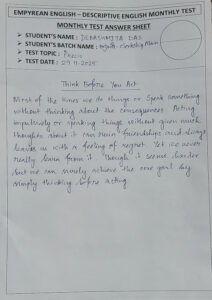 EMPYREAN ENGLISH – DESCRIPTIVE ENGLISH MONTHLY TEST
MONTHLY TEST ANSWER SHEET
➤ STUDENT'S NAME : DEBASHMITA DAS
➤ STUDENT'S BATCH NAME :
➤ TEST TOPIC : Precis
➤ TEST DATE : 29.11.2025
Think Before You Act
Most of the times we do things or speak something
without thinking about the consequences. Acting
impulsively or speaking things without given much
thoughts about it can ruin friendships and always
leaves us with a feeling of regret. Yet we never
really learn from it. Though it seems harder
but we can surely achieve the goal by
simply thinking before acting